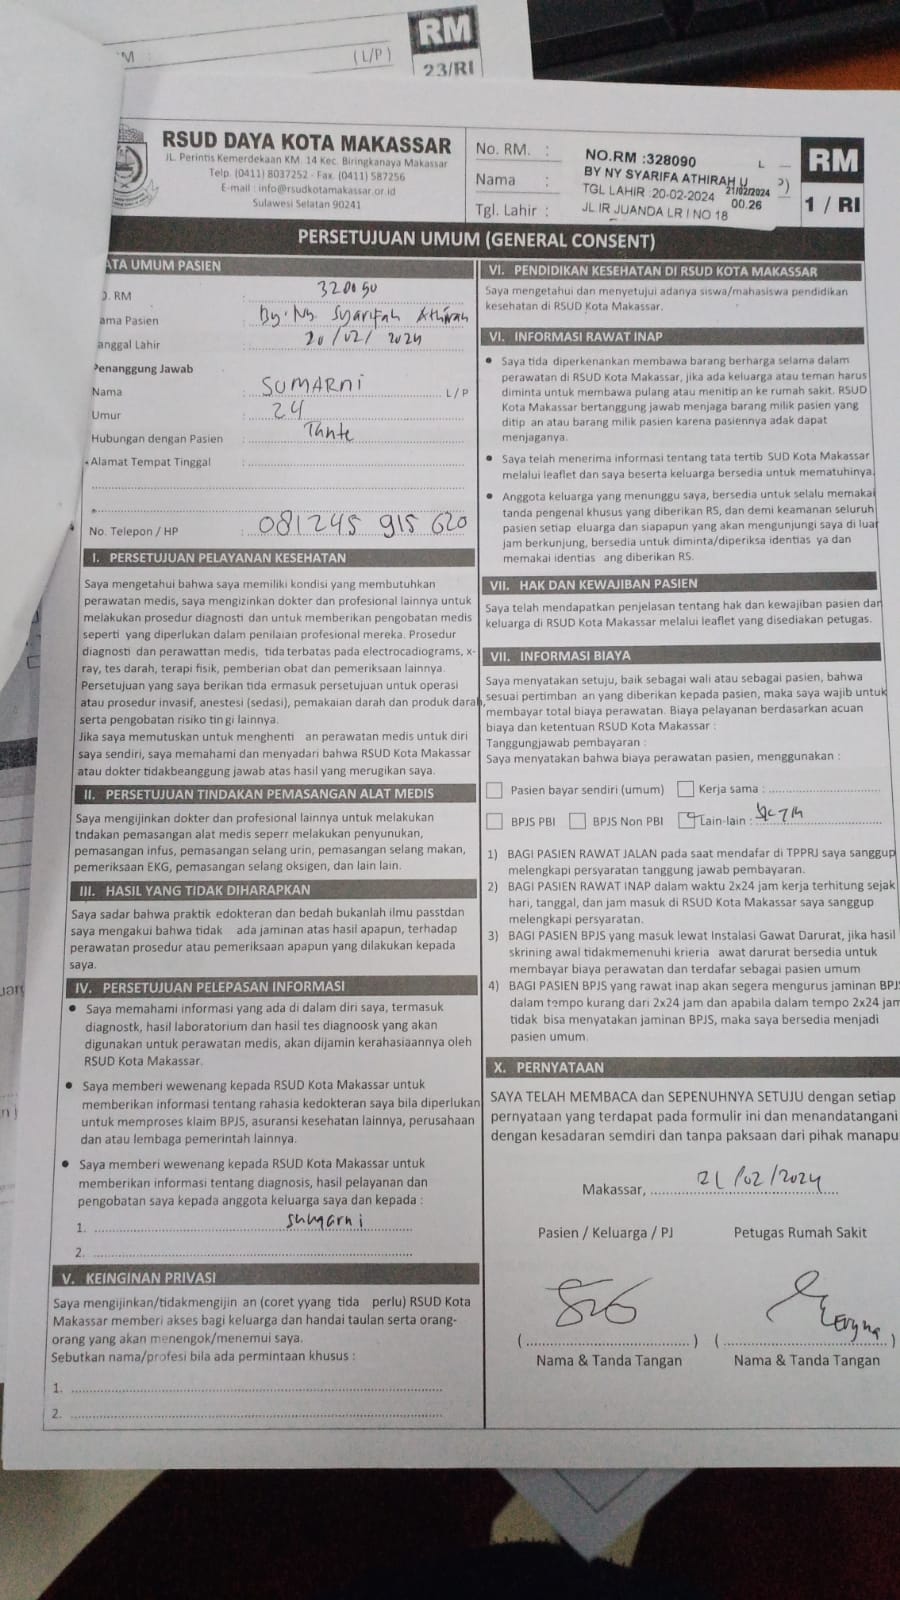 M :
(L/P)
RM
23/RI
RSUD DAYA KOTA MAKASSAR
JL. Perintis Kemerdekaan KM. 14 Kec. Biringkanaya Makassar
Telp. (0411) 8037252 - Fax. (0411) 587256
E-mail : info@rsudkotamakassar.or.id
Sulawesi Selatan 90241
No. RM. :
Nama :
Tgl. Lahir :
NO.RM :328090 L
BY NY SYARIFA ATHIRAH U
TGL LAHIR :20-02-2024 21/02/2024
JL IR JUANDA LR I NO 18 00.26
RM
1 / RI
PERSETUJUAN UMUM (GENERAL CONSENT)
ATA UMUM PASIEN
. RM
ama Pasien : By. Ny Syarifah Athirah
anggal Lahir : 20/02/2024
Penanggung Jawab
Nama : SUMARNI L/P
Umur : 24
Hubungan dengan Pasien : Tante
Alamat Tempat Tinggal :
No. Telepon / HP : 081245 915 620
I. PERSETUJUAN PELAYANAN KESEHATAN
Saya mengetahui bahwa saya memiliki kondisi yang membutuhkan
perawatan medis, saya mengizinkan dokter dan profesional lainnya untuk
melakukan prosedur diagnosti dan untuk memberikan pengobatan medis
seperti yang diperlukan dalam penilaian profesional mereka. Prosedur
diagnosti dan perawattan medis, tida terbatas pada electrocadiograms, x-
ray, tes darah, terapi fisik, pemberian obat dan pemeriksaan lainnya.
Persetujuan yang saya berikan tida ermasuk persetujuan untuk operasi
atau prosedur invasif, anestesi (sedasi), pemakaian darah dan produk darah,
serta pengobatan risiko tin gi lainnya.
Jika saya memutuskan untuk menghenti an perawatan medis untuk diri
saya sendiri, saya memahami dan menyadari bahwa RSUD Kota Makassar
atau dokter tidakbeanggung jawab atas hasil yang merugikan saya.
II. PERSETUJUAN TINDAKAN PEMASANGAN ALAT MEDIS
Saya mengijinkan dokter dan profesional lainnya untuk melakukan
tndakan pemasangan alat medis seperr melakukan penyunukan,
pemasangan infus, pemasangan selang urin, pemasangan selang makan,
pemeriksaan EKG, pemasangan selang oksigen, dan lain lain.
III. HASIL YANG TIDAK DIHARAPKAN
Saya sadar bahwa praktik edokteran dan bedah bukanlah ilmu passtdan
saya mengakui bahwa tidak ada jaminan atas hasil apapun, terhadap
perawatan prosedur atau pemeriksaan apapun yang dilakukan kepada
saya.
IV. PERSETUJUAN PELEPASAN INFORMASI
• Saya memahami informasi yang ada di dalam diri saya, termasuk
diagnostk, hasil laboratorium dan hasil tes diagnoosk yang akan
digunakan untuk perawatan medis, akan dijamin kerahasiaannya oleh
RSUD Kota Makassar.
• Saya memberi wewenang kepada RSUD Kota Makassar untuk
memberikan informasi tentang rahasia kedokteran saya bila diperlukan
untuk memproses klaim BPJS, asuransi kesehatan lainnya, perusahaan
dan atau lembaga pemerintah lainnya.
• Saya memberi wewenang kepada RSUD Kota Makassar untuk
memberikan informasi tentang diagnosis, hasil pelayanan dan
pengobatan saya kepada anggota keluarga saya dan kepada :
1. Sumarni
2.
V. KEINGINAN PRIVASI
Saya mengijinkan/tidakmengijin an (coret yyang tida perlu) RSUD Kota
Makassar memberi akses bagi keluarga dan handai taulan serta orang-
orang yang akan menengok/menemui saya.
Sebutkan nama/profesi bila ada permintaan khusus :
1.
2.
VI. PENDIDIKAN KESEHATAN DI RSUD KOTA MAKASSAR
Saya mengetahui dan menyetujui adanya siswa/mahasiswa pendidikan
kesehatan di RSUD Kota Makassar.
VI. INFORMASI RAWAT INAP
• Saya tida diperkenankan membawa barang berharga selama dalam
perawatan di RSUD Kota Makassar, jika ada keluarga atau teman harus
diminta untuk membawa pulang atau menitip an ke rumah sakit. RSUD
Kota Makassar bertanggung jawab menjaga barang milik pasien yang
ditip an atau barang milik pasien karena pasiennya adak dapat
menjaganya.
• Saya telah menerima informasi tentang tata tertib SUD Kota Makassar
melalui leaflet dan saya beserta keluarga bersedia untuk mematuhinya.
• Anggota keluarga yang menunggu saya, bersedia untuk selalu memakai
tanda pengenal khusus yang diberikan RS, dan demi keamanan seluruh
pasien setiap eluarga dan siapapun yang akan mengunjungi saya di luar
jam berkunjung, bersedia untuk diminta/diperiksa identias ya dan
memakai identias ang diberikan RS.
VII. HAK DAN KEWAJIBAN PASIEN
Saya telah mendapatkan penjelasan tentang hak dan kewajiban pasien dan
keluarga di RSUD Kota Makassar melalui leaflet yang disediakan petugas.
VII. INFORMASI BIAYA
Saya menyatakan setuju, baik sebagai wali atau sebagai pasien, bahwa
sesuai pertimban an yang diberikan kepada pasien, maka saya wajib untuk
membayar total biaya perawatan. Biaya pelayanan berdasarkan acuan
biaya dan ketentuan RSUD Kota Makassar :
Tanggungjawab pembayaran :
Saya menyatakan bahwa biaya perawatan pasien, menggunakan :
Pasien bayar sendiri (umum) Kerja sama :
BPJS PBI BPJS Non PBI Lain-lain :
1) BAGI PASIEN RAWAT JALAN pada saat mendafar di TPPRJ saya sanggup
melengkapi persyaratan tanggung jawab pembayaran.
2) BAGI PASIEN RAWAT INAP dalam waktu 2x24 jam kerja terhitung sejak
hari, tanggal, dan jam masuk di RSUD Kota Makassar saya sanggup
melengkapi persyaratan.
3) BAGI PASIEN BPJS yang masuk lewat Instalasi Gawat Darurat, jika hasil
skrining awal tidakmemenuhi krieria awat darurat bersedia untuk
membayar biaya perawatan dan terdafar sebagai pasien umum
4) BAGI PASIEN BPJS yang rawat inap akan segera mengurus jaminan BPJS
dalam tempo kurang dari 2x24 jam dan apabila dalam tempo 2x24 jam
tidak bisa menyatakan jaminan BPJS, maka saya bersedia menjadi
pasien umum.
X. PERNYATAAN
SAYA TELAH MEMBACA dan SEPENUHNYA SETUJU dengan setiap
pernyataan yang terdapat pada formulir ini dan menandatangani
dengan kesadaran semdiri dan tanpa paksaan dari pihak manapu
Makassar, 21/02/2024
Pasien / Keluarga / PJ Petugas Rumah Sakit
( ) ( )
Nama & Tanda Tangan Nama & Tanda Tangan